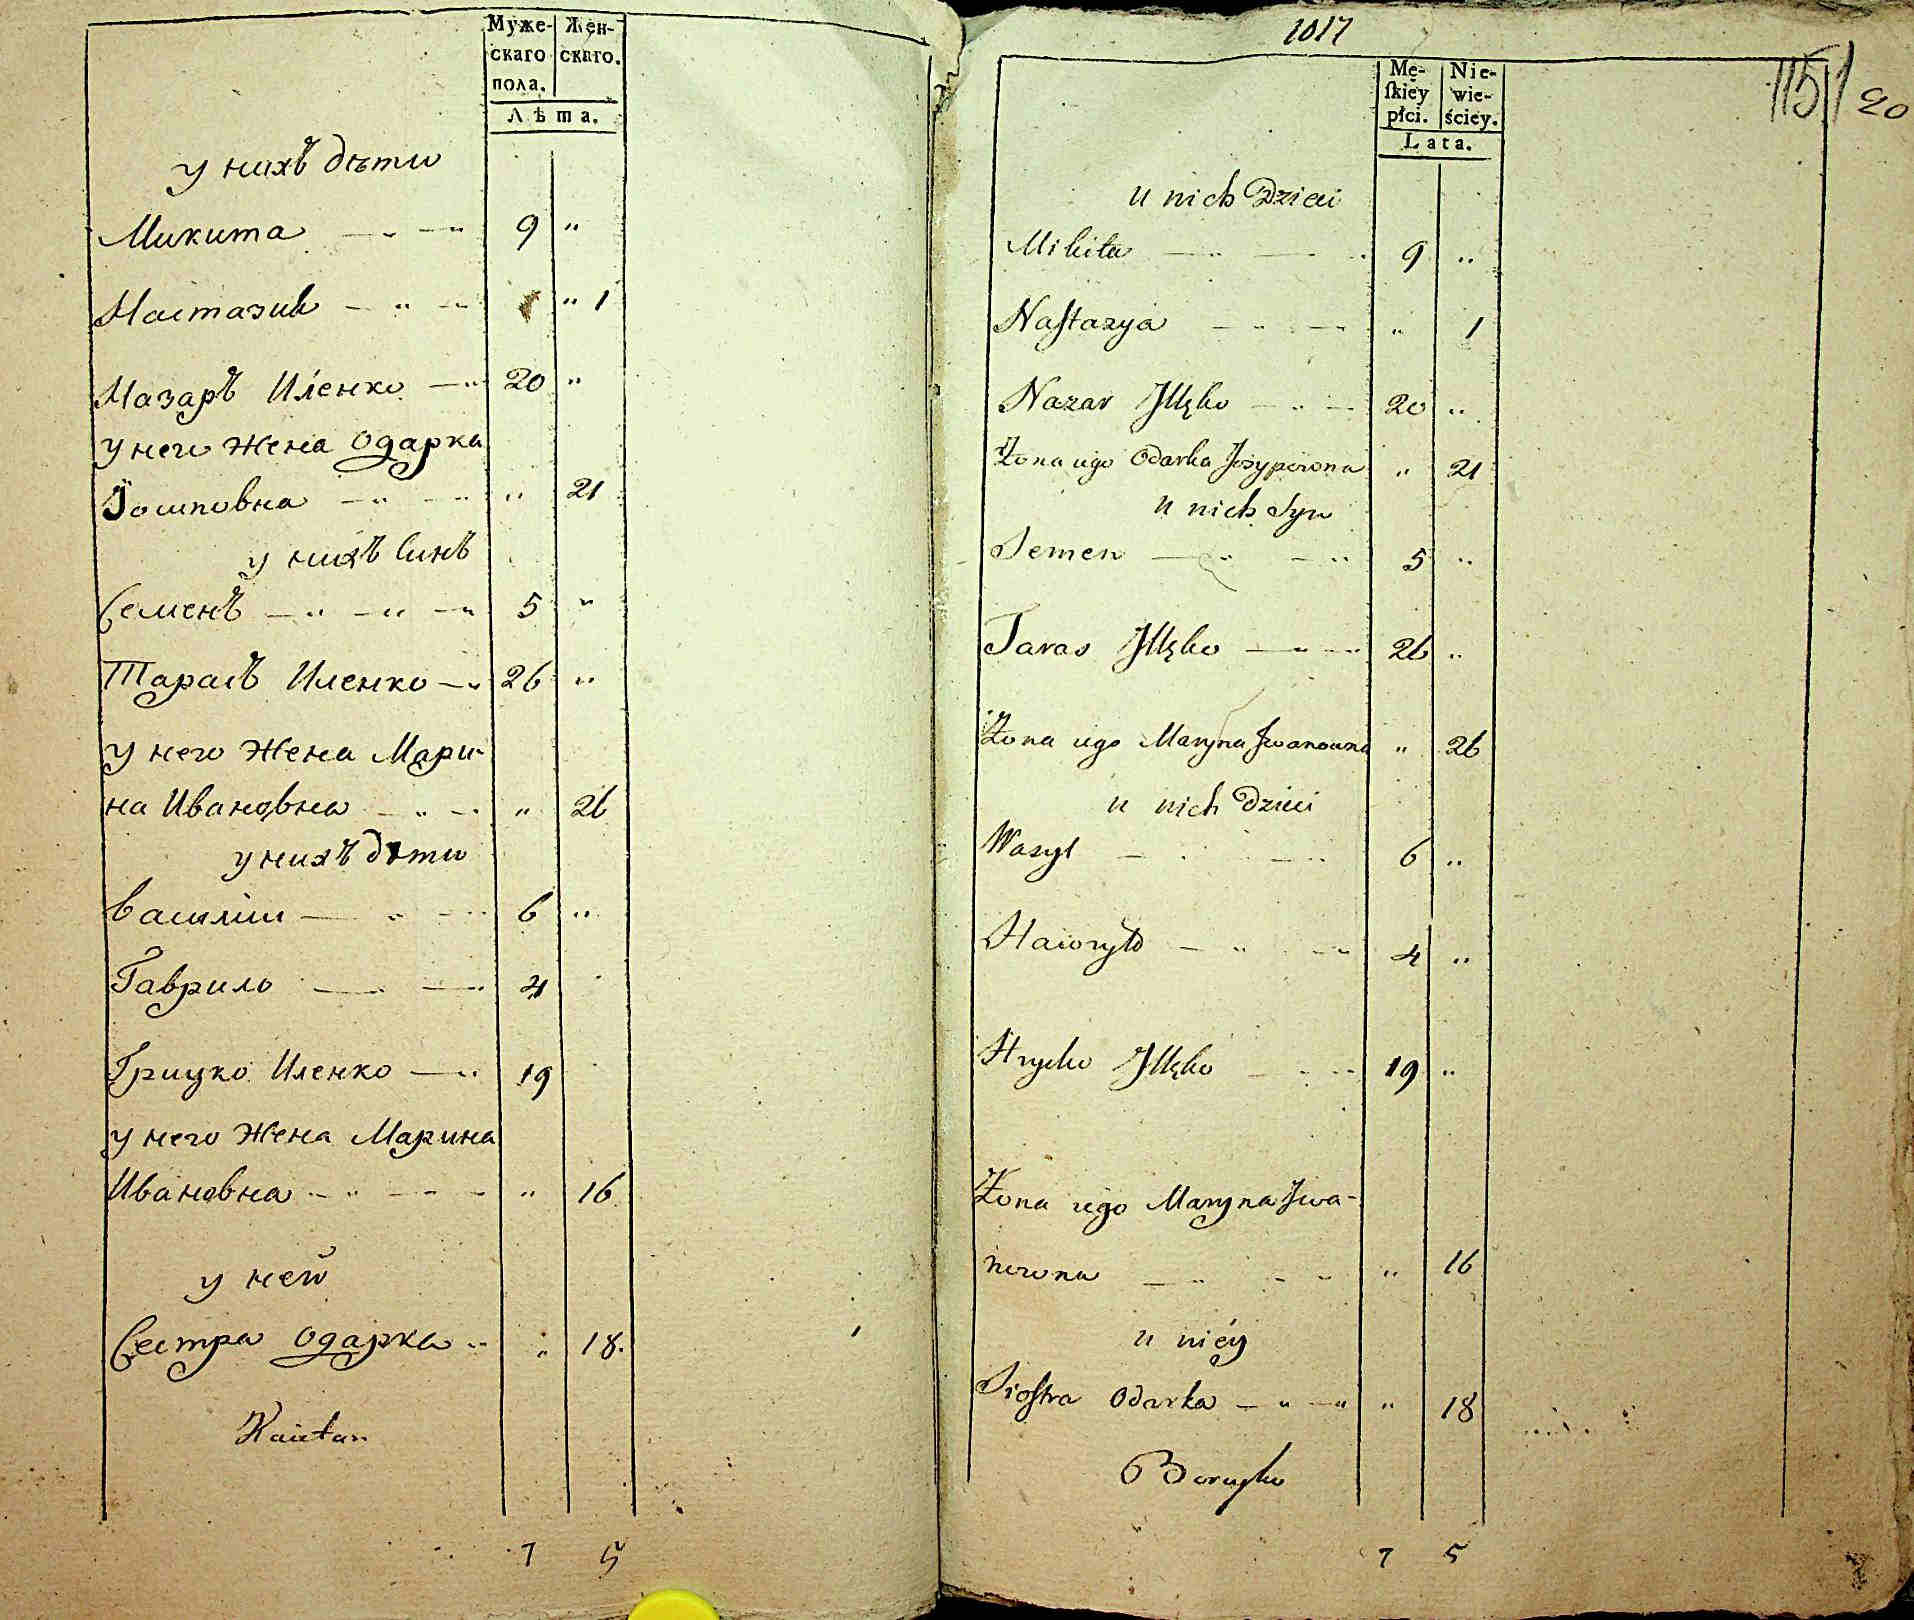 Муже-
скаго
пола.
Жен-
скаго.
Лѣта.
у нихъ дѣти
Микита — „ — „ 9 „
Настазия — „ — „ „ 1
Назаръ Иленко — „ 20 „
у него жена Одарка
Іосиповна — „ — „ „ 21
у нихъ Синъ
Семенъ — „ — „ — „ 5 „
Тарасъ Иленко — „ 26 „
у него жена Мари-
на Ивановна — „ — „ 26
у нихъ дѣти
Василій — „ — „ 6 „
Гаврило — „ — „ 4
Грицко Иленко — „ 19
у него жена Марина
Ивановна — „ — „ „ 16
у ней
Сестра Одарка „ „ 18.
Kaietan
7 5
1017
115 20
Mę-
ſkiey
płci.
Nie-
wie-
ściey.
Lata.
u nich Dzieci
Mikita — „ — „ 9 „
Naſtazya — „ — „ „ 1
Nazar Jllęko — „ — 20 „
Żona iego Odarka Jozypowna „ 21
u nich Syn
Semen — „ — „ 5 „
Taras Jllęko — „ — „ 26 „
Żona iego Maryna Jwanowna „ 26
u nich Dzieci
Wasyl — „ — „ 6 „
Hawryło — „ — „ 4 „
Hrycko Jllęko — „ — 19 „
Żona iego Maryna Jwa-
nowna — „ — „ „ 16
u niéy
Sioſtra Odarka — „ — „ „ 18
7 5